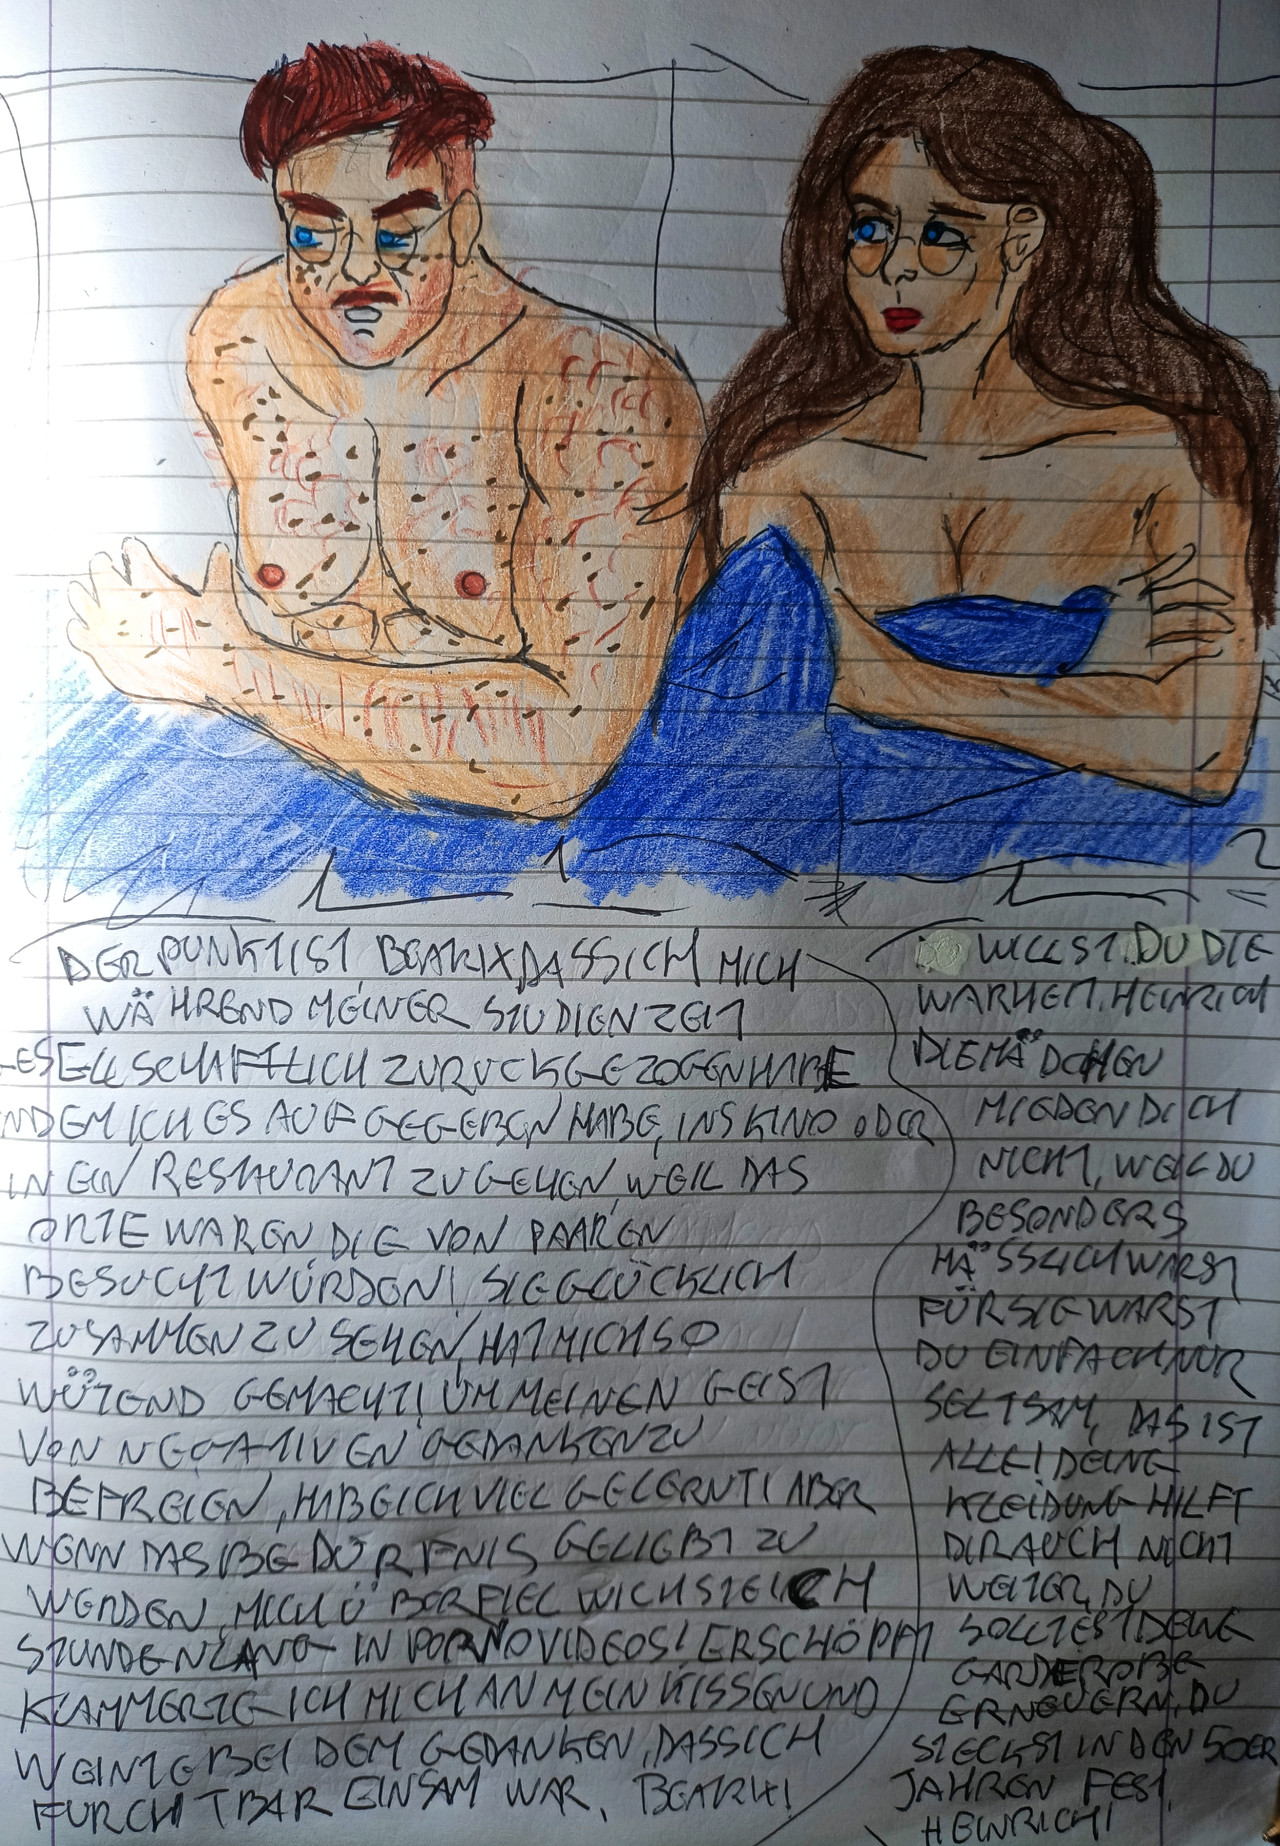 DER PUNKT IST BEATRIX, DASS ICH MICH
WÄHREND MEINER STUDIENZEIT
GESELLSCHAFTLICH ZURUCKGEZOGEN HABE
INDEM ICH ES AUFGEGEBEN HABE, INS KINO ODER
IN EIN RESTAURANT ZU GEHEN, WEIL DAS
ORTE WAREN, DIE VON PAAREN
BESUCHT WÜRDEN! SIE GLÜCKLICH
ZUSAMMEN ZU SEHEN, HAT MICH SO
WÜTEND GEMACHT! UM MEINEN GEIST
VON NEGATIVEN GEDANKEN ZU
BEFREIEN, HABE ICH VIEL GELERNT! ABER
WENN DAS BEDÜRFNIS GELIEBT ZU
WERDEN, MICH ÜBERFIEL WICHSTE ICH
STUNDENLANG IN PORNOVIDEOS! ERSCHÖPFT
KLAMMERTE ICH MICH AN MEIN KISSEN UND
WEINTE BEI DEM GEDANKEN, DASS ICH
FURCHTBAR EINSAM WAR, BEATRIX!
WILLST DU DIE
WARHEIT, HEINRICH
DIE MÄDCHEN
MIEDEN DICH
NICHT, WEIL DU
BESONDERS
HÄSSLICH WARST
FÜR SIE WARST
DU EINFACH NUR
SELTSAM, DAS IST
ALLE! DEINE
KLEIDUNG HILFT
DIR AUCH NICHT
WEITER, DU
SOLLTEST DEINE
GARDEROBE
ERNEUERN, DU
STECKST IN DEN 50ER
JAHREN FEST,
HEINRICH!